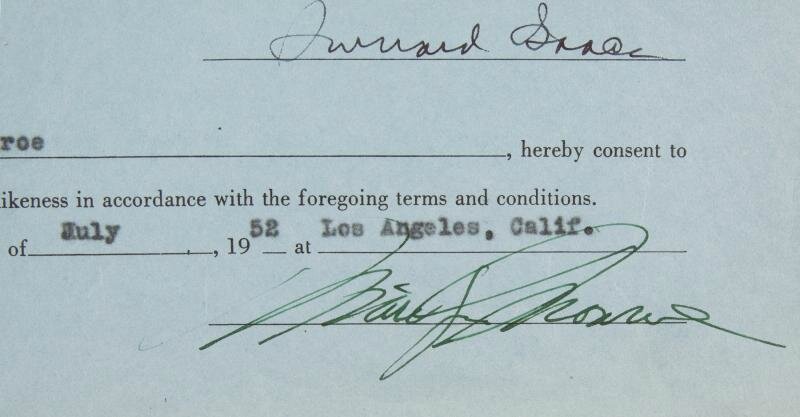 roe, hereby consent to
ikeness in accordance with the foregoing terms and conditions.
of July, 1952 at Los Angeles, Calif.
Marilyn Monroe